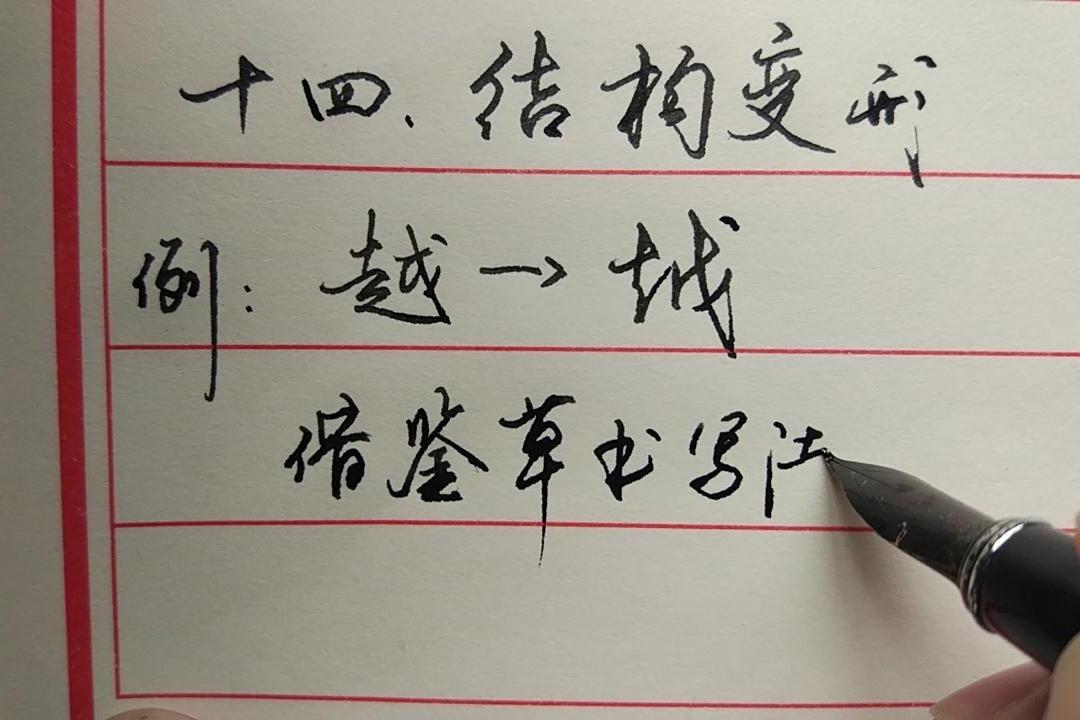 十四、结构变形
例：越→越
借鉴草书写法